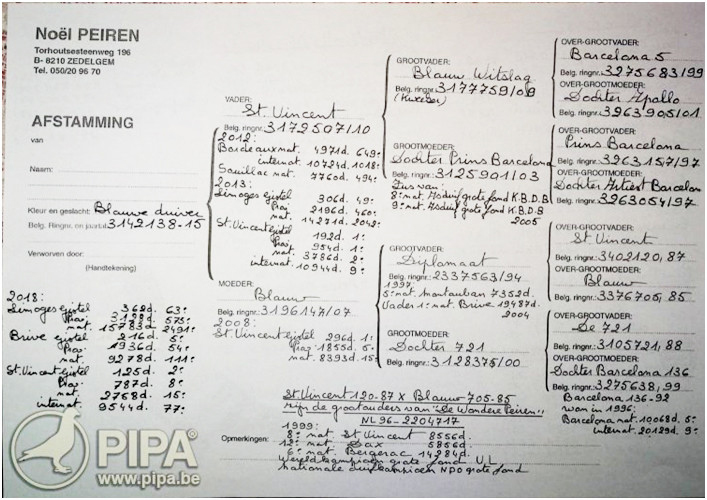 Noël PEIREN
Torhoutsesteenweg 196
B- 8210 ZEDELGEM
Tel. 050/20 96 70
AFSTAMMING
van
Naam:
Kleur en geslacht: Blauwe duiver
Belg. Ringnr. en jaartal 3142138-15
Verworven door:
(Handtekening)
2018:
Limoges ejstel 368d. 63e
Prov. 3198d. 575e
nat. 15783d 2491e
Brive ejstel 216d. 5e
Prov. 1936d. 54e
nat. 9278d. 111e
St. Vincent ejstel 125d. 2e
Prov. 787d. 8e
nat. 2768d. 15e
internat. 9544d. 77e
VADER:
St. Vincent
Belg. ringnr. 3172507/10
2012:
Bordeaux nat. 4971d. 649e
internat. 10724d. 1018e
Souillac nat. 7760d. 494e
2013:
Limoges ejstel 306d. 49e
Prov. 2196d. 460e
nat. 14271d. 2042e
St. Vincent ejstel 192d. 1e
Prov. 954d. 1e
nat. 3786d. 2e
internat. 10944d. 9e
MOEDER:
Blauw
Belg. ringnr. 3196147/07
2008:
St. Vincent ejstel 296d. 1e
Prov. 1855d. 5e
nat. 8393d. 15e
GROOTVADER:
Blauw Witslag
Belg. ringnr. 3177759/09
GROOTMOEDER:
Dochter Prins Barcelona
Belg. ringnr.: 3125901/03
Zus van:
8e nat. Asduif grote fond K.B.D.B
9e nat. Asduif grote fond K.B.D.B
2005
GROOTVADER:
Diplomaat
Belg. ringnr.: 2337563/94
1997:
5e nat. Montauban 7352d.
Vader 1e nat. Brive 19487d.
2004
GROOTMOEDER:
Dochter 721
Belg. ringnr.: 3128375/00
OVER-GROOTVADER:
Barcelona 5
Belg. ringnr.: 3275683/99
OVER-GROOTMOEDER:
Dochter Apollo
Belg. ringnr.: 3263905/01
OVER-GROOTVADER:
Prins Barcelona
Belg. ringnr.: 3263157/97
OVER-GROOTMOEDER:
Dochter Artiest Barcelon
Belg. ringnr.: 3263054/97
OVER-GROOTVADER:
St. Vincent
Belg. ringnr.: 3402120/87
OVER-GROOTMOEDER:
Blauw
Belg. ringnr.: 3376705/85
OVER-GROOTVADER:
De 721
Belg. ringnr.: 3105721/88
OVER-GROOTMOEDER:
Dochter Barcelona 136
Belg. ringnr.: 3275638/99
Barcelona 136-92
won in 1996:
Barcelona nat. 10068d. 5e
internat. 20129d. 9e
St Vincent 120-87 X Blauw 705-85
zijn de grootouders van "De Wondere Peiren"
NL 96-2204717
1999:
Opmerkingen: 8e nat St Vincent 8556d.
12e nat Dax 5856d
6e nat Bergerac 14284d.
Wereldkampioen grote fond U.L
nationale duifkampioen NPO grote fond
PIPA
www.pipa.be